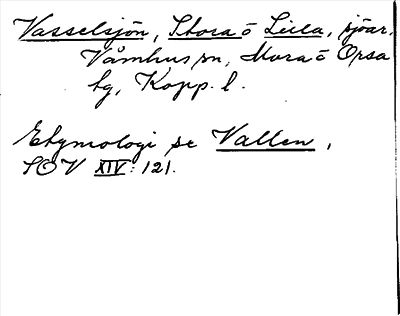 Vasselsjön, Stora o Lilla, sjöar,
Våmhus sn, Mora o Orsa
tg, Kopp. l.
Etymologi se Vallen,
SOV XIV: 121.